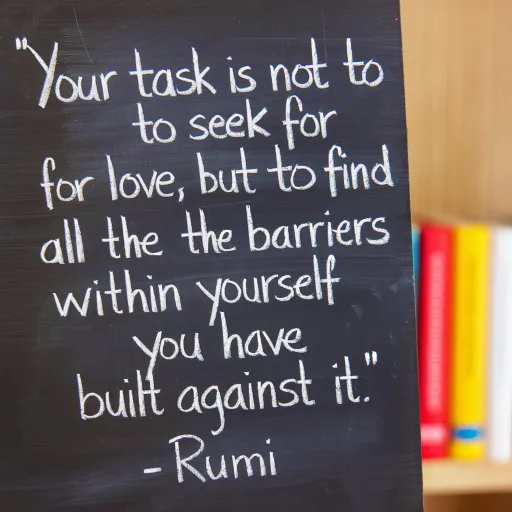 "Your task is not to
to seek for
for love, but to find
all the the barriers
within yourself
you have
built against it."
- Rumi